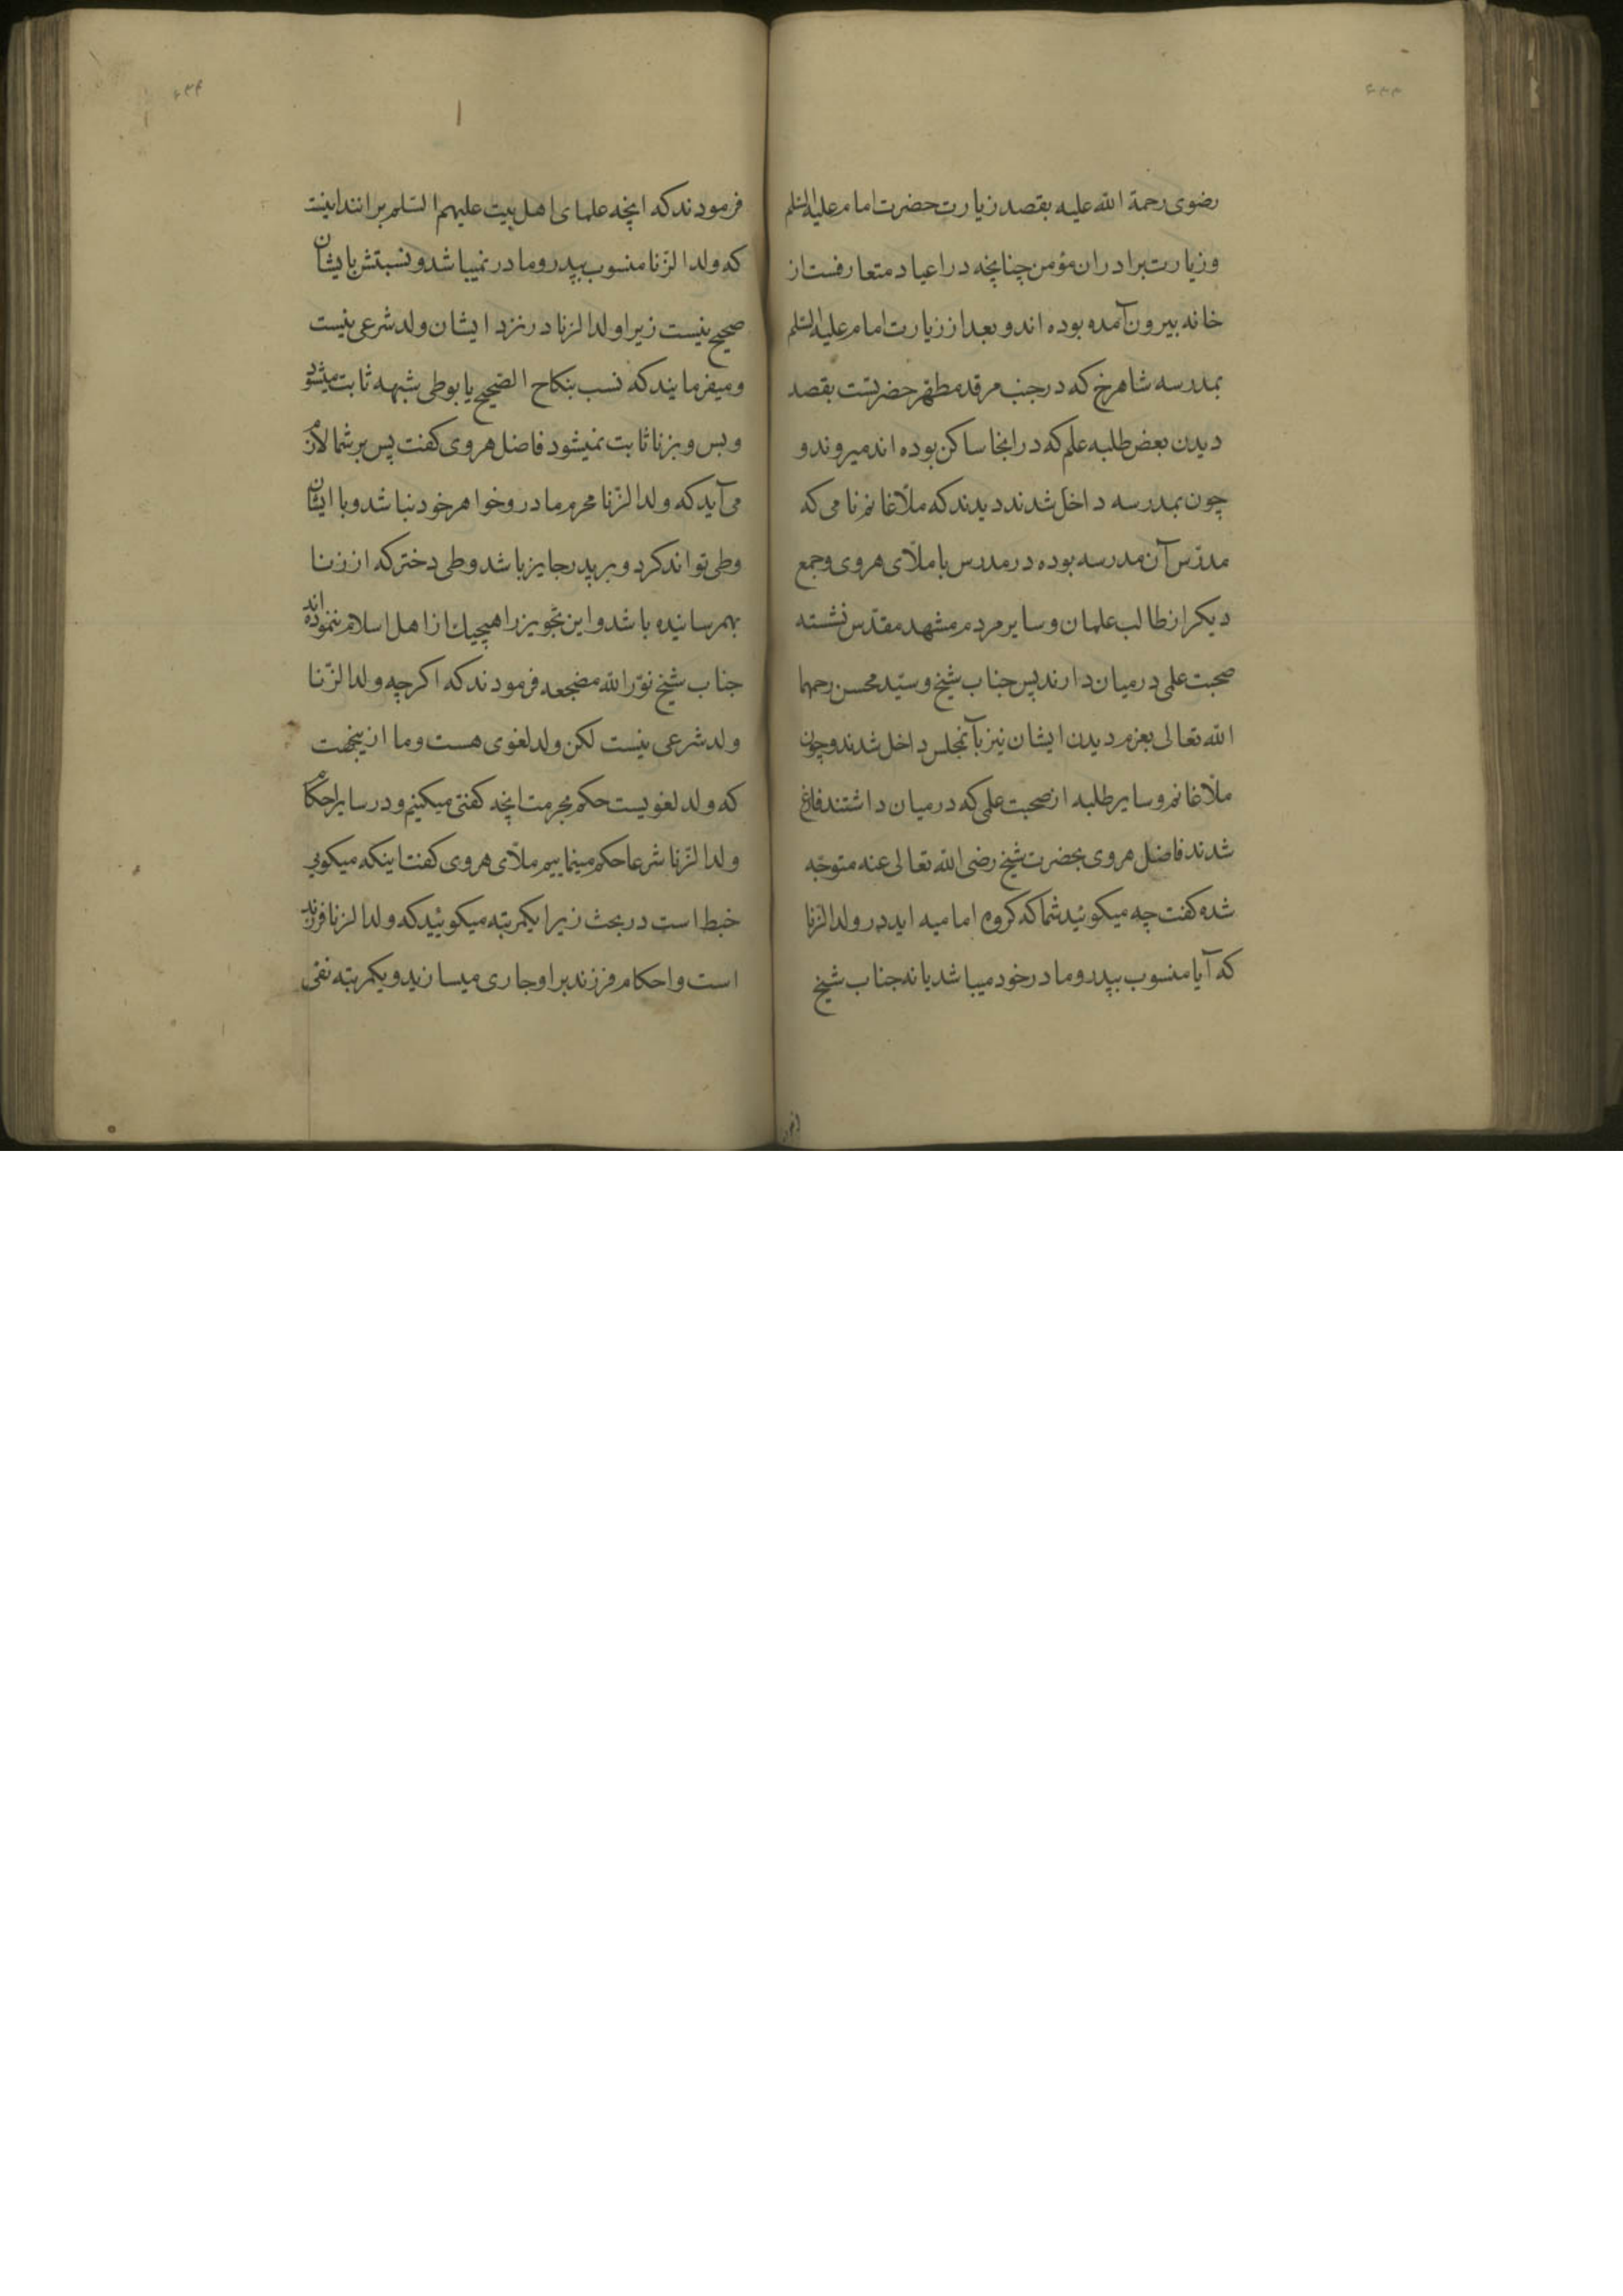 ۶۳۳
رضوی رحمة الله علیه بقصد زیارت حضرت امام علیه السلم
و زیارت برادران مؤمن چنانچه در اعیاد متعارفست از
خانه بیرون آمده بوده اند و بعد از زیارت امام علیه السلم
بمدرسه شاهرخ که در جنب مرقد مطهر حضرتست بقصد
دیدن بعض طلبه علم که در انجا ساکن بوده اند میروند و
چون بمدرسه داخل شدند دیدند که ملّا غانم نامی که
مدرّس آن مدرسه بوده در مدرس با ملّای هروی و جمع
دیکر از طالب علمان و سایر مردم مشهد مقدّس نشسته
صحبت علمی در میان دارند پس جناب شیخ و سیّد محسن رحمهما
الله تعالی بعزم دیدن ایشان نیز بآنمجلس داخل شدند و چون
ملّا غانم و سایر طلبه از صحبت علمی که در میان داشتند فارغ
شدند فاضل هروی بحضرت شیخ رضی الله تعالی عنه متوجّه
شده کفت چه میکوئید شما که کروه امامیه اید در ولد الزنا
که آیا منسوب بپدر و مادر خود میباشد یا نه جناب شیخ
۶۳۴
فرمودند که انچه علمای اهل بیت علیهم السّلم برانند اینست
که ولد الزّنا منسوب بپدر و مادر نمیباشد و نسبتش بایشان
صحیح نیست زیرا ولد الزنا در نزد ایشان ولد شرعی نیست
و میفرمایند که نسب بنکاح الصّحیح یا بوطی شبهه ثابت میشود
و بس و بزنا ثابت نمیشود فاضل هروی کفت پس بر شما لازم
می آید که ولد الزّنا محرم مادر و خواهر خود نباشد و با ایشان
وطی تواند کرد و بر پدر جایز باشد وطی دختر که از زنا
بهمرسانیده باشد و این تجویز را هیچیک از اهل اسلام ننموده اند
جناب شیخ نوّر الله مضجعه فرمودند که اکرچه ولد الزّنا
ولد شرعی نیست لکن ولد لغوی هست و ما از ینجهت
که ولد لغویست حکم بحرمت انچه کفتی میکنیم و در سایر احکام
ولد الزّنا شرعا حکم مینماییم ملّای هروی کفت اینکه میکویی
خبط است در بحث زیرا یکمرتبه میکوئید که ولد الزنا فرزند
است و احکام فرزند بر او جاری میسازید و یکمرتبه نفی